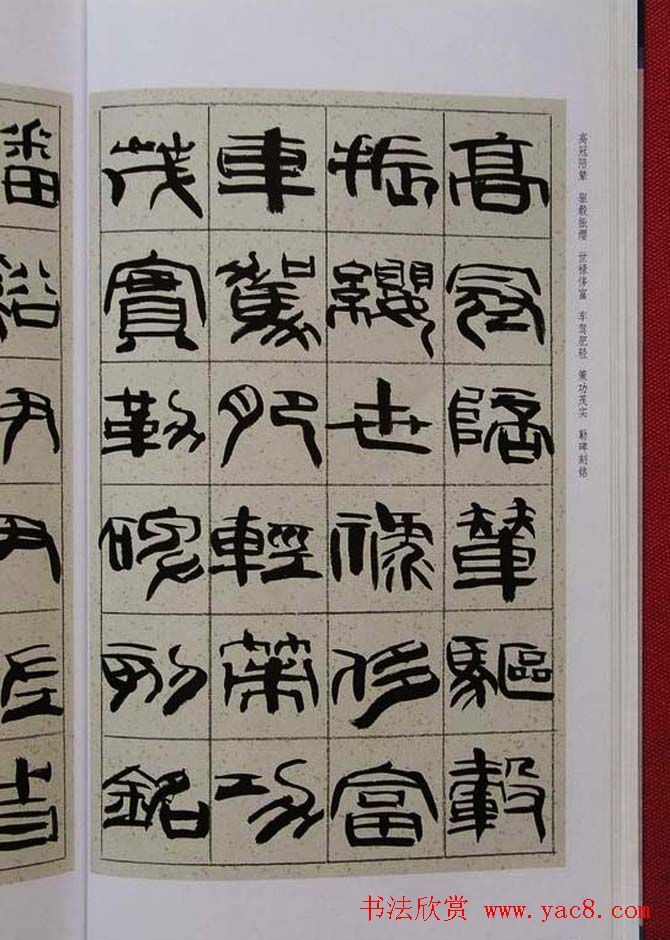 高冠陪輦驅轂
振纓世祿侈富
車駕肥輕策功
茂實勒碑刻銘
高冠陪辇 驱毂振缨 世禄侈富 车驾肥轻 策功茂实 勒碑刻铭
磻
谿
伊
尹
佐
时
书法欣赏 www.yac8.com